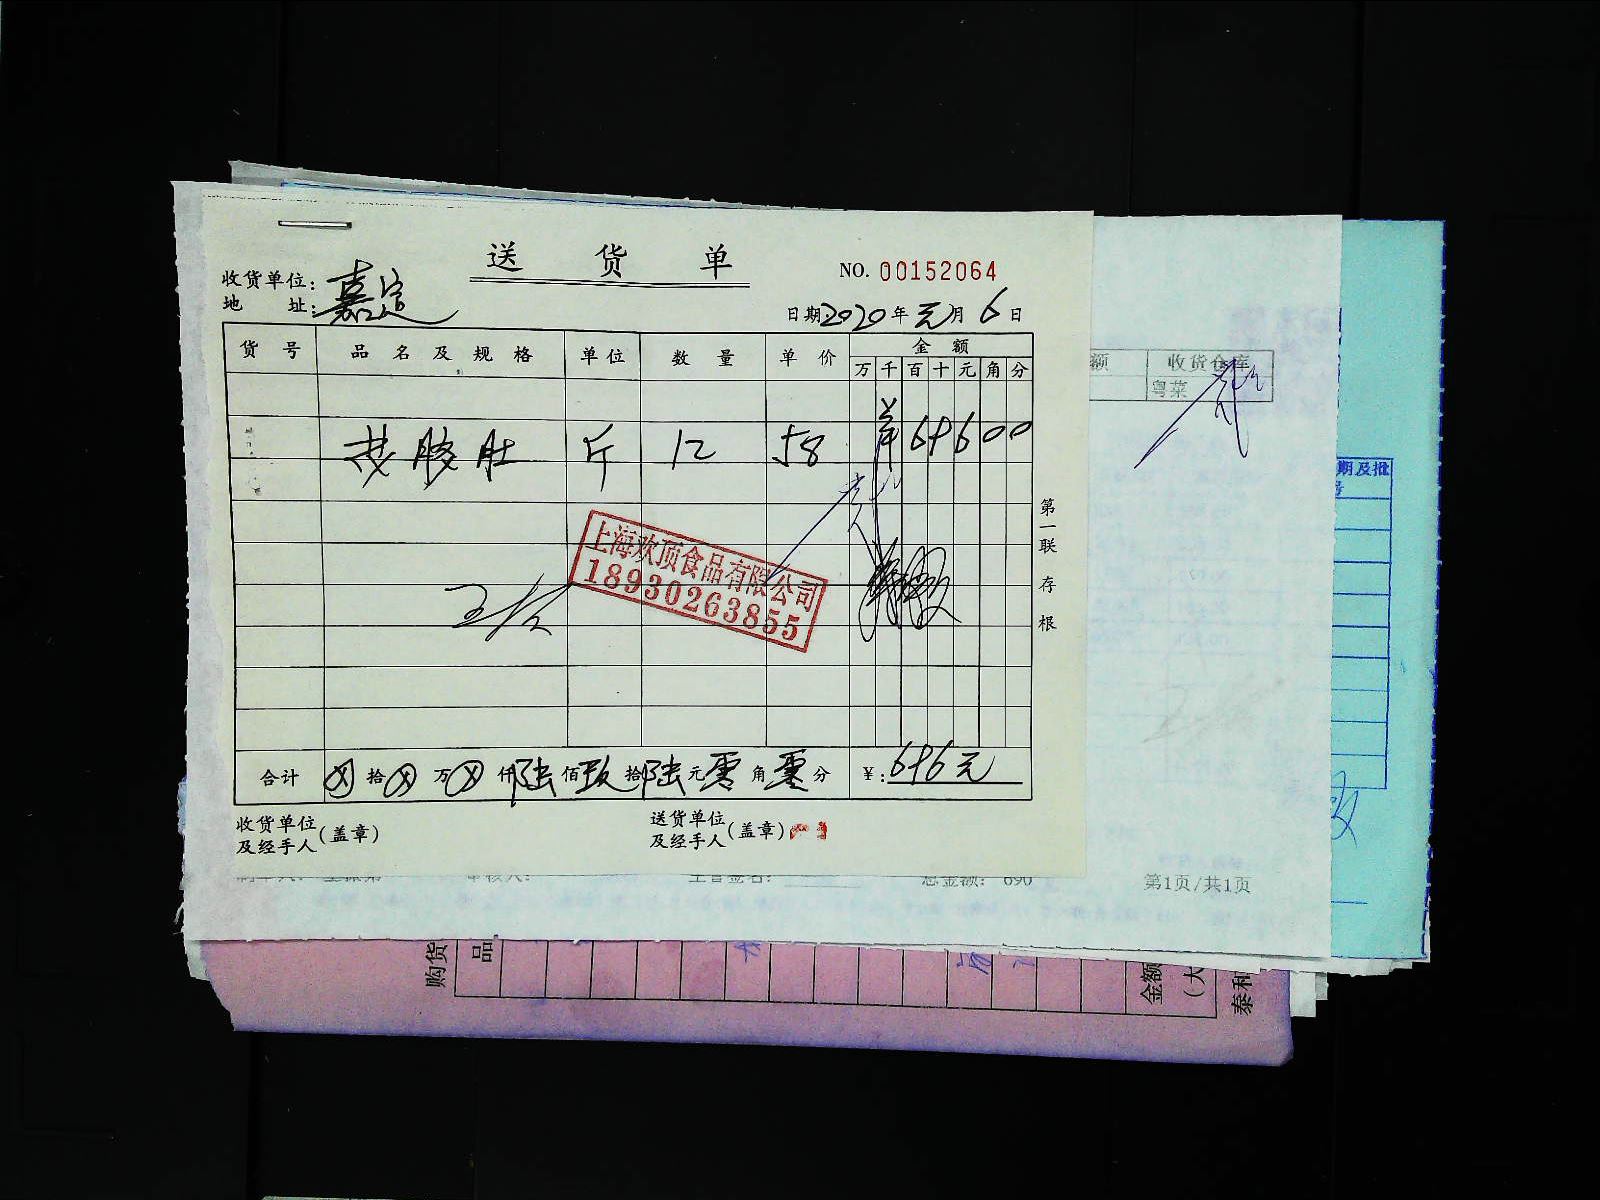 送 货 单
NO. 00152064
收货单位:
地 址: 嘉定
日期 2020 年 元 月 6 日
货 号 品 名 及 规 格 单位 数 量 单 价 金 额
万 千 百 十 元 角 分
胶肚 斤 12 58 ¥ 6 9 6 0 0
上海欢顶食品有限公司
18930263855
第一联存根
合计 ⊗ 拾 ⊗ 万 ⊗ 仟 陆 佰 玖 拾 陆 元 零 角 零 分 ¥: 696元
收货单位
及经手人 (盖章)
送货单位
及经手人 (盖章)
额 收货仓库
粤菜
期及批
号
总金额: 696
第1页/共1页
购货
品
金额
(大
泰和